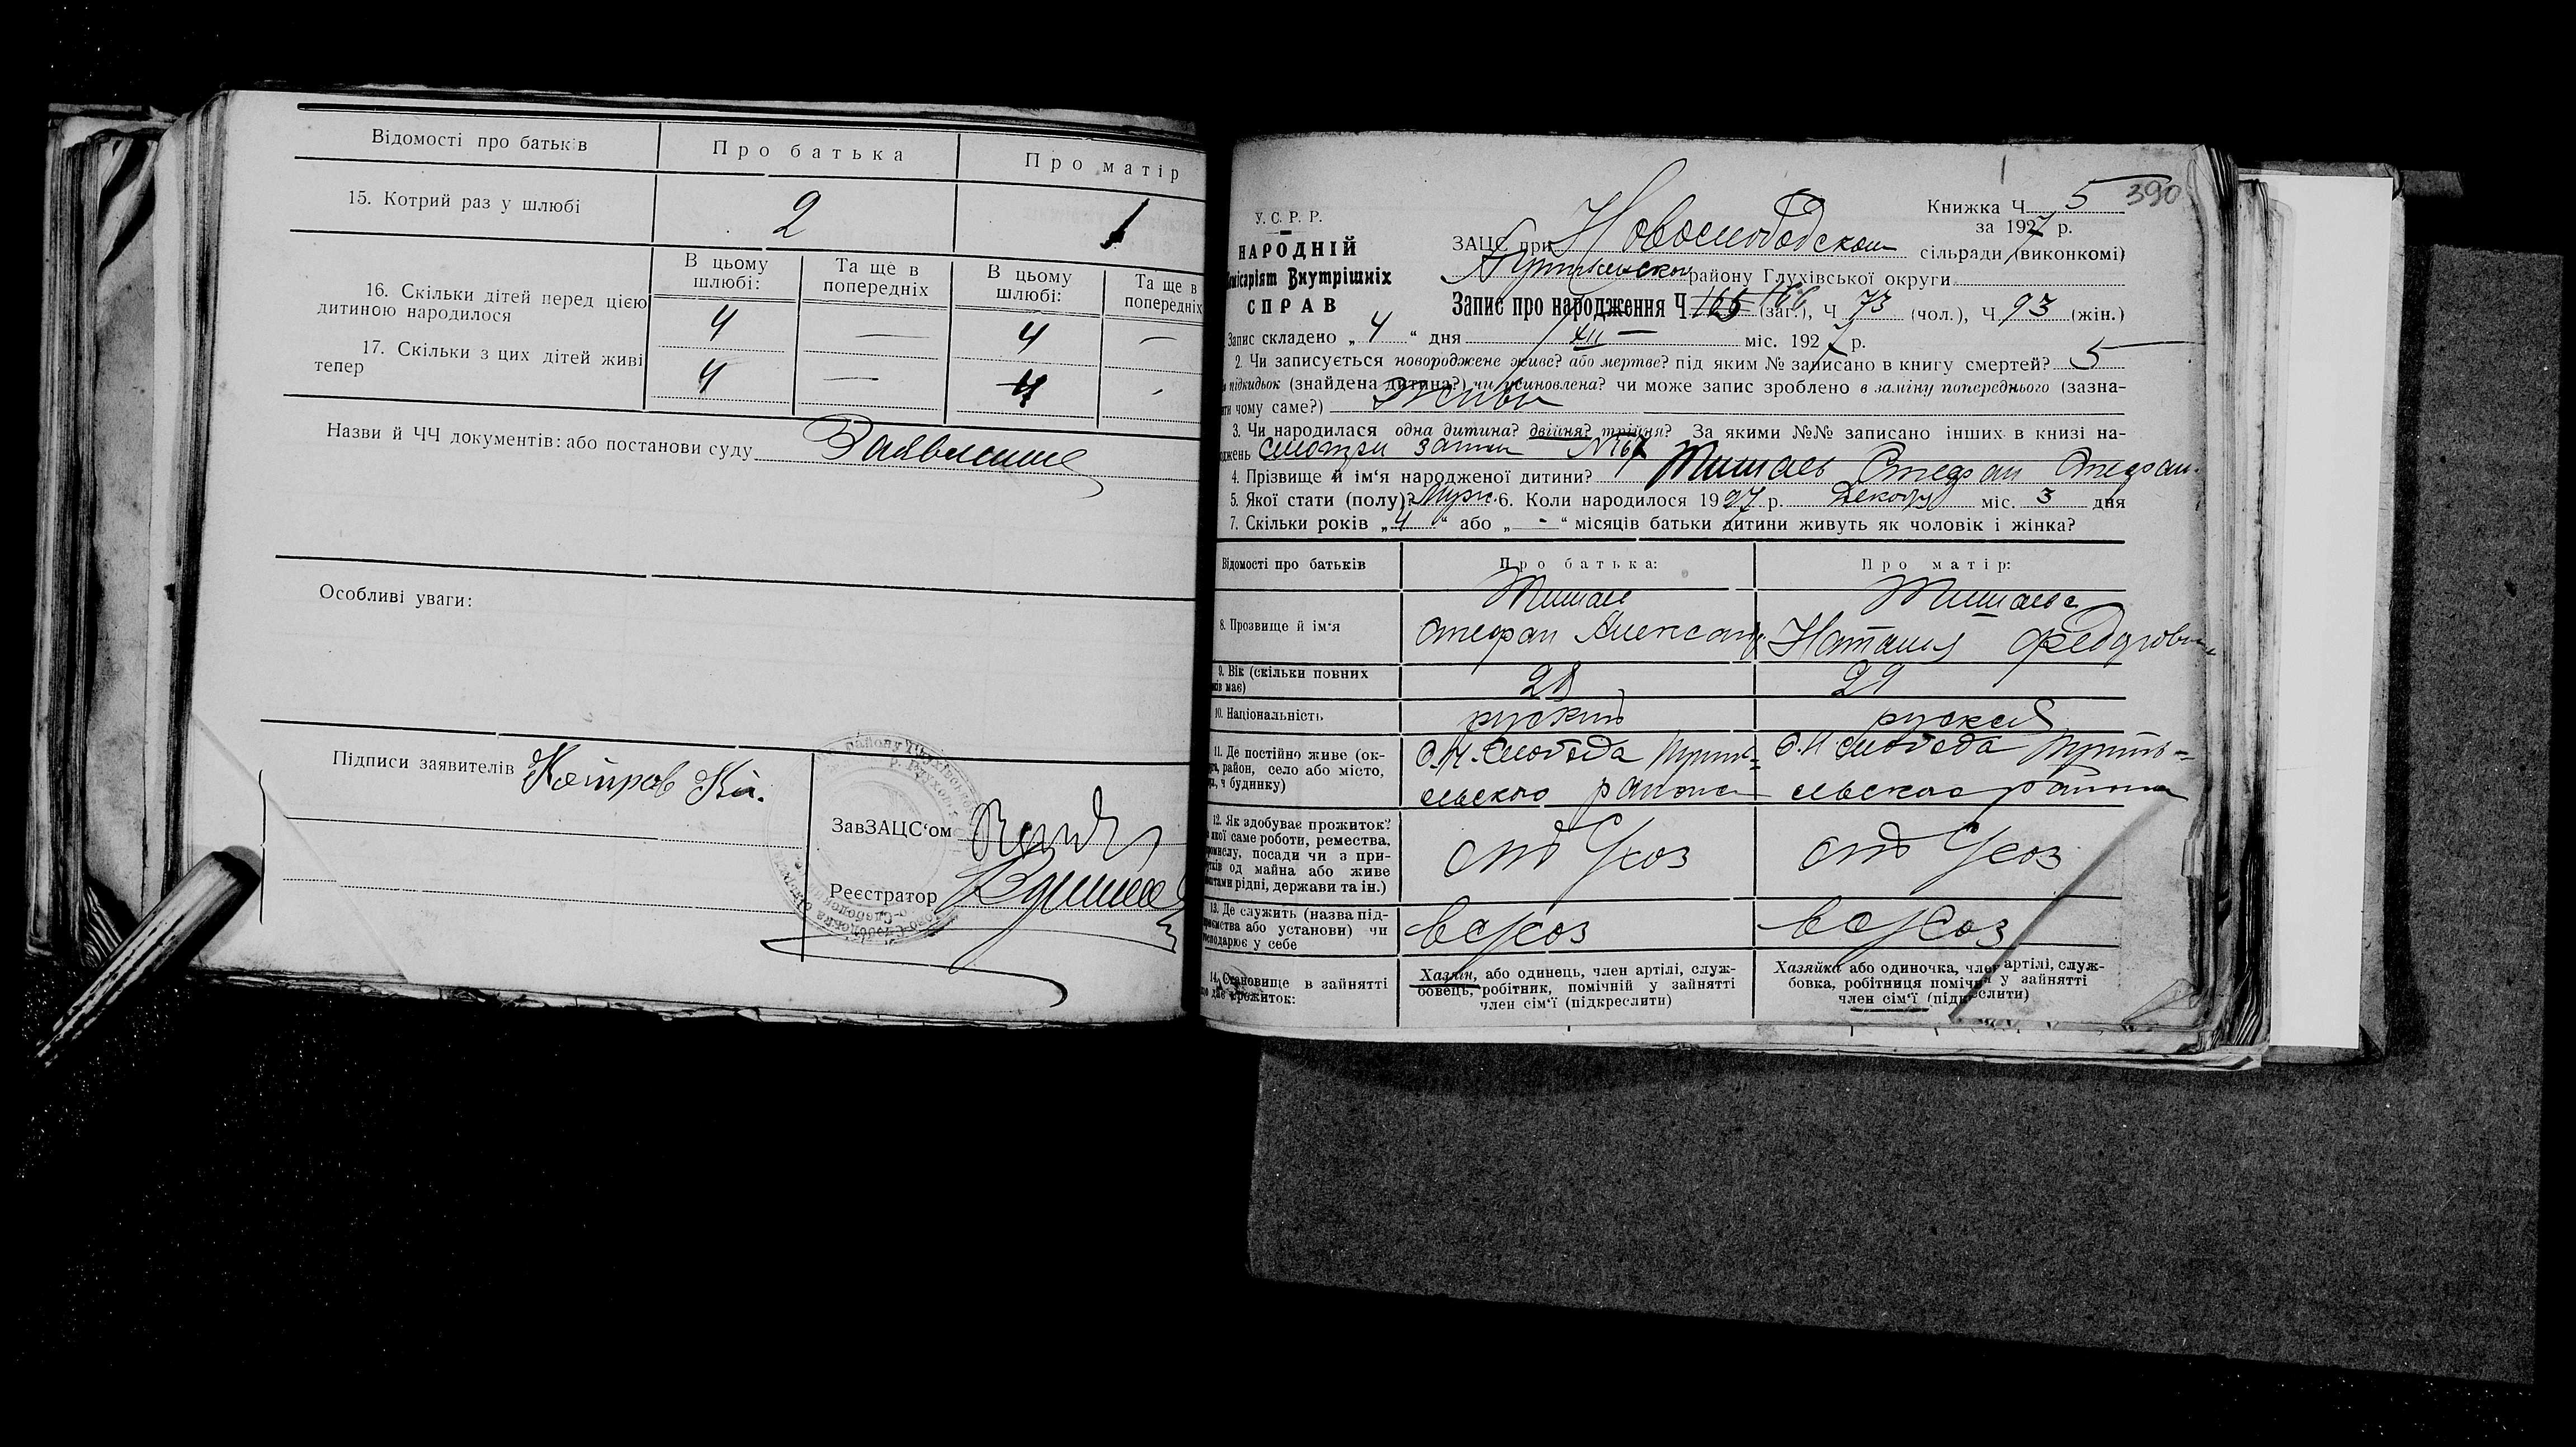 Відомості про батьків
Про батька
Про матір
15. Котрий раз у шлюбі
2
1
В цьому шлюбі:
Та ще в попередніх
В цьому шлюбі:
Та ще в попередніх
16. Скільки дітей перед цією
дитиною народилося
4 — 4 —
17. Скільки з цих дітей живі
тепер
4 — 4
Назви й ЧЧ документів: або постанови суду Заявление
Особливі уваги:
Підписи заявителів
ЗавЗАЦС'ом
Реєстратор
390
Книжка Ч 5
за 1927 р.
У. С. Р. Р.
НАРОДНІЙ
Комісаріят Внутрішніх
СПРАВ
ЗАЦС при Новослободском сільради (виконкомі)
району Глухівської округи
Запис про народження Ч 165 166 (заг.), Ч 73 (чол.), Ч 93 (жін.)
Запис складено „ 4 “ дня XII — міс. 1927 р.
2. Чи записується новороджене живе? або мертве? під яким № записано в книгу смертей? 5
підкидьок (знайдена дитина?) чи усиновлена? чи може запис зроблено в заміну попереднього (зазна-
чому саме?)
3. Чи народилася одна дитина? двійня? трійня? За якими №№ записано інших в книзі на-
смотри запис №167
4. Прізвище й ім'я народженої дитини? Тишаев Стефан Стефан.
5. Якої стати (полу)? Муж. 6. Коли народилося 1927 р. Декабр міс. 3 дня
7. Скільки років „ 4 “ або „ - “ місяців батьки дитини живуть як чоловік і жінка?
Відомості про батьків
Про батька:
Про матір:
8. Прозвище й ім'я
Тишаев
Стефан Александ
Тишаева
Наталия Федоровн
9. Вік (скільки повних
має)
28
29
10. Національність
руский
руская
11. Де постійно живе (ок-
район, село або місто,
ч будинку)
С. Н. Слобода Путив-
льского района
С. Н. Слобода Путив-
льского района
12. Як здобуває прожиток?
якої саме роботи, ремества,
посади чи з при-
од майна або живе
рідні, держави та ін.)
от
от
13. Де служить (назва під-
або установи) чи
у себе
14. Становище в зайнятті
що дає прожиток:
Хазяїн, або одинець, член артілі, служ-
бовець, робітник, помічній у зайнятті
член сім'ї (підкреслити)
Хазяйка або одиночка, член артілі, служ-
бовка, робітниця помічн у зайнятті
член сім'ї (підкреслити)